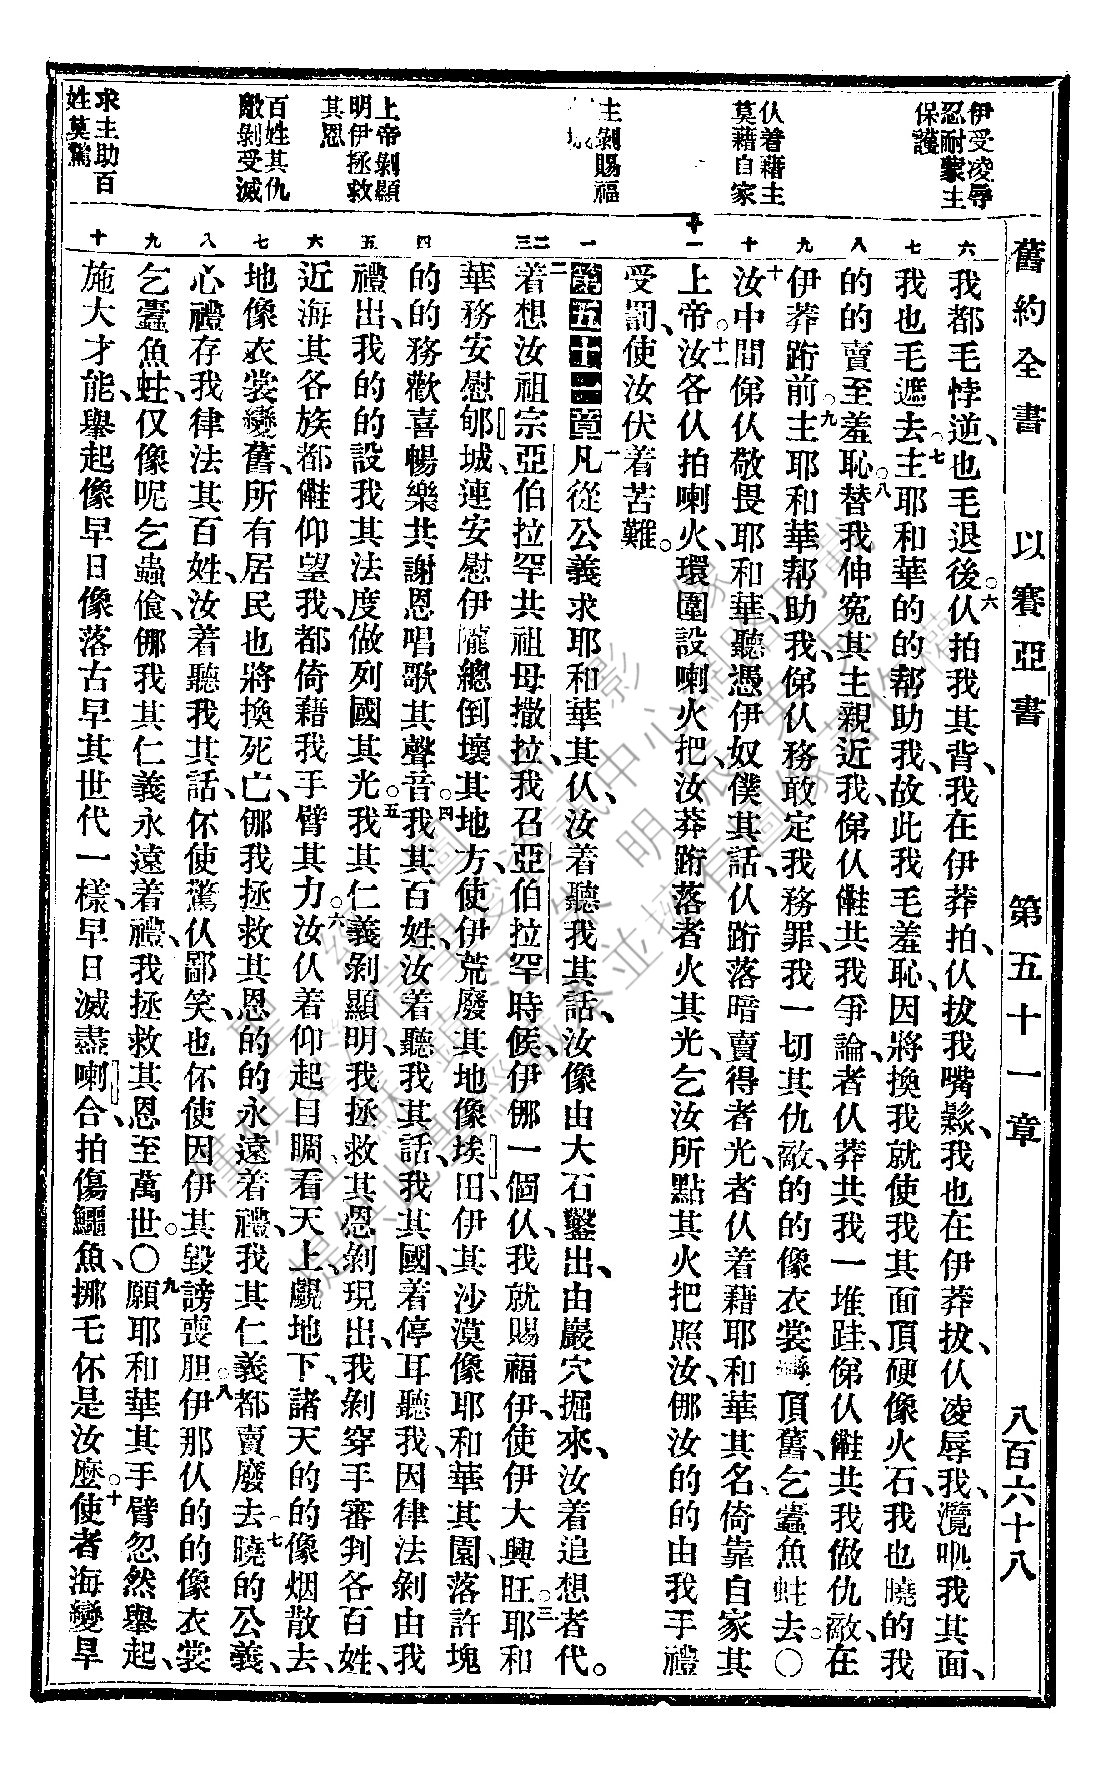 舊約全書 以賽亞書 第五十一章 八百六十八
伊受凌辱
忍耐蒙主
保護
仈着藉主
莫藉自家
主剝賜福
城
上帝剝顯
明伊拯救
其恩
百姓其仇
敵剝受滅
求主助百
姓莫驚
六 七 八 九 十 十一 一 二 三 四 五 六 七 八 九 十
我都毛悖逆、也毛退後。六仈拍我其背、我在伊莽拍、仈拔我嘴鬏、我也在伊莽拔、仈凌辱我、瀾我其面、
我也毛遮去。七主耶和華的的帮助我、故此我毛羞恥、因將換我就使我其面頂硬像火石、我也曉的我
的的賣至羞恥。八替我伸冤其主親近我、俤仈儺共我爭論、者仈莽共我一堆跬、俤仈儺共我做仇敵、在
伊莽跨前。九主耶和華帮助我、俤仈務敢定我務罪、我一切其仇敵、的的像衣裳頂舊、乞蠹魚蛀去。〇
十汝中間俤仈敬畏耶和華、聽憑伊奴僕其話、仈跨落暗賣得者光、者仈着藉耶和華其名、倚靠自家其
上帝。十一汝各仈拍喇火、環圍設喇火把、汝莽跨落者火其光、乞汝所點其火把照汝、挪汝的的由我手禮
受罰、使汝伏着苦難。
第五十一章 一凡從公義求耶和華其仈、汝着聽我其話、汝像由大石鑿出、由巖穴掘來、汝着追想者代。
二着想汝祖宗亞伯拉罕、共祖母撒拉、我召亞伯拉罕時候、伊挪一個仈、我就賜福伊、使伊大興旺。三耶和
華務安慰郇城、連安慰伊隴總倒壞其地方、使伊荒廢其地像埃田、伊其沙漠像耶和華其園、落許塊
的的務歡喜暢樂、共謝恩唱歌其聲音。四我其百姓、汝着聽我其話、我其國、着停耳聽我、因律法剝由我
禮出、我的的設我其法度、做列國其光。五我其仁義剝顯明、我拯救其恩剝現出、我剝穿手審判各百姓、
近海其各族、都儺仰望我、都倚藉我手臂其力。六汝仈着仰起目睭看天上、覷地下、諸天的的像烟散去、
地像衣裳變舊、所有居民也將換死亡、挪我拯救其恩的的永遠着禮、我其仁義都賣廢去。七曉的公義、
心禮存我律法其百姓、汝着聽我其話、伓使驚仈鄙笑、也伓使因伊其毀謗喪胆。八伊那仈的的像衣裳
乞蠹魚蛀、仅像呢乞蟲飡、挪我其仁義永遠着禮、我拯救其恩至萬世。〇九願耶和華其手臂忽然舉起、
施大才能、舉起像早日、像落古早其世代一樣、早日滅盡喇合、拍傷鱷魚、挪毛伓是汝麽。十使者海變旱